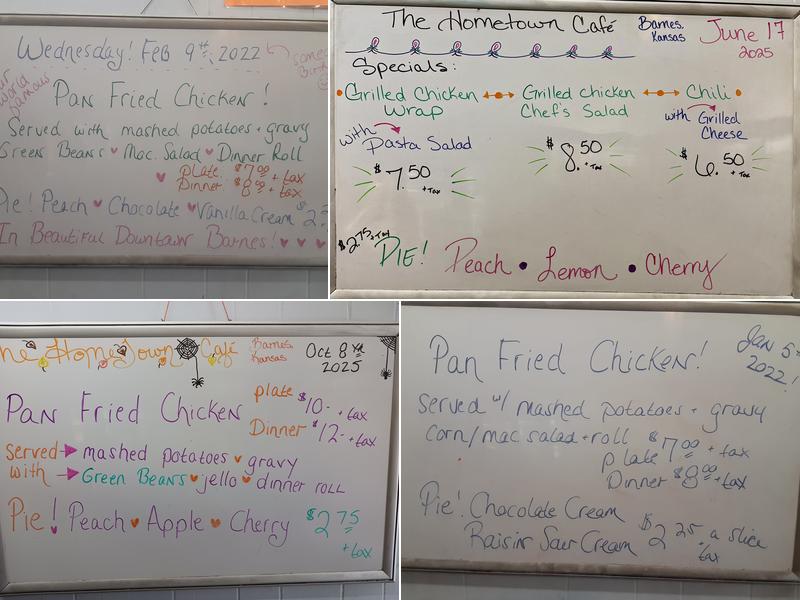 Wednesday! Feb 9th, 2022
world famous
Pan Fried Chicken!
Served with mashed potatoes + gravy
Green Beans ♥ Mac. Salad ♥ Dinner Roll
♥ Plate $7.00 + tax
Dinner $8.00 + tax
Pie! Peach ♥ Chocolate ♥ Vanilla Cream
In Beautiful Downtown Barnes! ♥ ♥ ♥ ♥
The Hometown Café
Barnes, Kansas
June 17
2025
Specials:
• Grilled Chicken Wrap
with Pasta Salad
$7.50 + Tax
Grilled chicken Chef's Salad
$8.50 + Tax
Chili •
with Grilled Cheese
$6.50 + Tax
$2.75 + Tax PIE! Peach • Lemon • Cherry
The HomeTown Café
Barnes, Kansas
Oct 8th
2025
Pan Fried Chicken
plate $10- + tax
Dinner $12- + tax
served with mashed potatoes ♥ gravy
Green Beans ♥ jello ♥ dinner roll
Pie! Peach ♥ Apple ♥ Cherry $2.75
+ tax
Pan Fried Chicken!
Jan 5th
2022!
served w/ mashed potatoes + gravy
corn/mac salad + roll
plate $7.00 + tax
Dinner $8.00 + tax
Pie! Chocolate Cream
Raisin Sour Cream
$2.25 a slice
tax